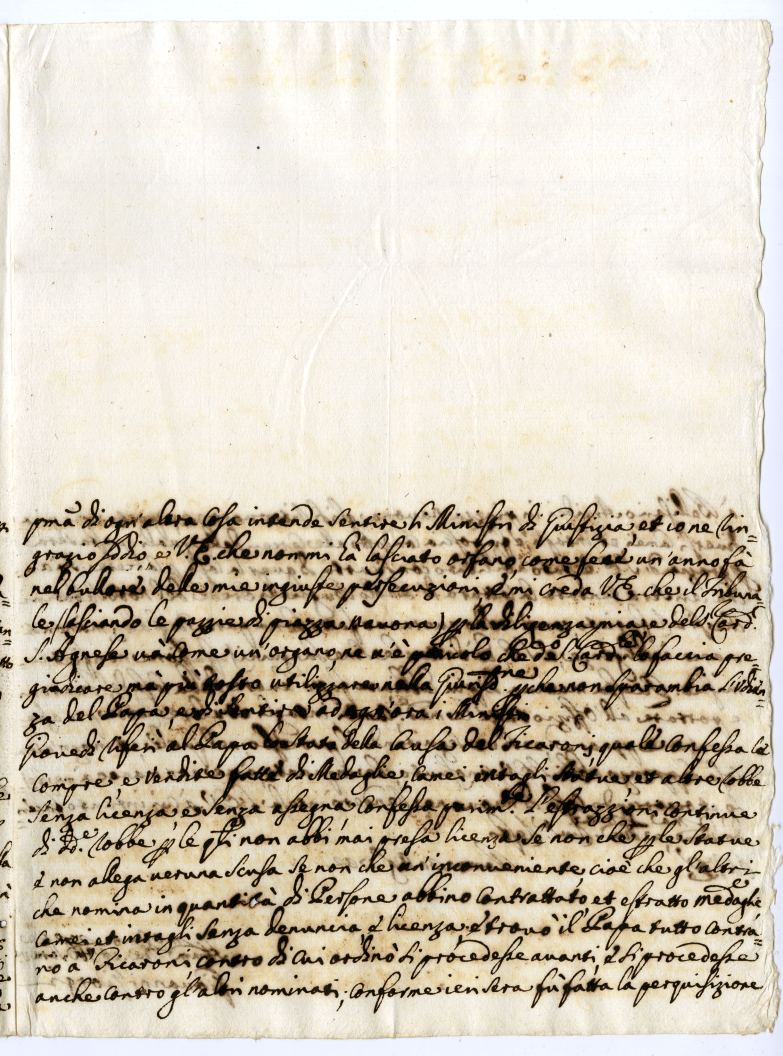 pmã di ogn'altra cosa intende sentire li Ministri di Giustizia, et io ne rin=
grazio Iddio, e V.E. che non mi hà lasciato orfano, come feci un'anno fà
nel bollore delle mie ingiuste persecuzioni, e mi creda V.E. che il Tribuna=
le (lasciando le pazzie di piazza navona) la diligenza mia, e del S. Card.
S. Agnese và come un'organo, ne v'è pericolo che d.o S. Card.le lo faccia pre=
giudicare mà più tosto utilizzare nella Giurisd.ne che non sparambia l'Udien=
za del Papa, e di sentire ad ogn'ora i Ministri
Giovedì riferì al Papa lo stato della Causa del Ficaroni, quale confessa le
compre, e vendite fatte di Medaglie, Camei, intagli, statue, et altre robbe
senza licenza, e senza assegna, confessa parim.te l'estrazzioni continue
di d.e robbe, p le qli non abbi mai presa licenza se non che p le statue
e non allega veruna scusa se non che un'inconveniente, cioè che gl'altri
che nomina in quantità di Persone abbino contrattato, et estratto medaglie
Camei, et intagli senza denuncia, e licenza, e trovò il Papa tutto contra=
rio a Ficaroni, contro di cui ordinò si procedesse avanti, e si procedesse
anche contro gl'altri nominati, conforme ieri sera fù fatta la perquisizione